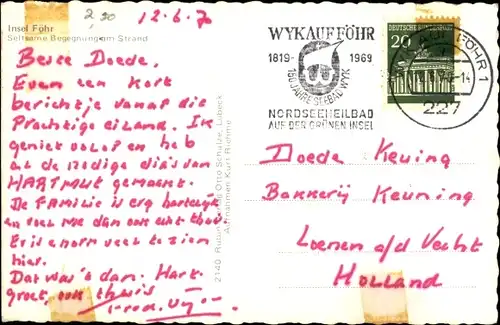 2,20
12.6.70
Insel Föhr
Seltsame Begegnung am Strand
Beste Doede,
Even een kort
berichtje vanaf dit
Prachtige eiland. Ik
geniet volop en heb
al de nodige dia's van
HARTMUT gemaakt.
De FAMILIE is erg hartelijk
en voel me dan ook echt thuis.
Er is enorm veel te zien
hier.
Dat was 't dan. Hart.
groet, ook thuis
2140 - Rud. Otto Schulze, Lübeck
Aufnahmen Kurt Riethme
WYK AUF FÖHR
1819- 1969
150 JAHRE SEEBAD WYK
NORDSEEHEILBAD
AUF DER GRÜNEN INSEL
DEUTSCHE BUNDESPOST
20
FÖHR 1
227
Doede Keuning
Bakkerij Keuning
Loenen a/d Vecht
HOLLAND